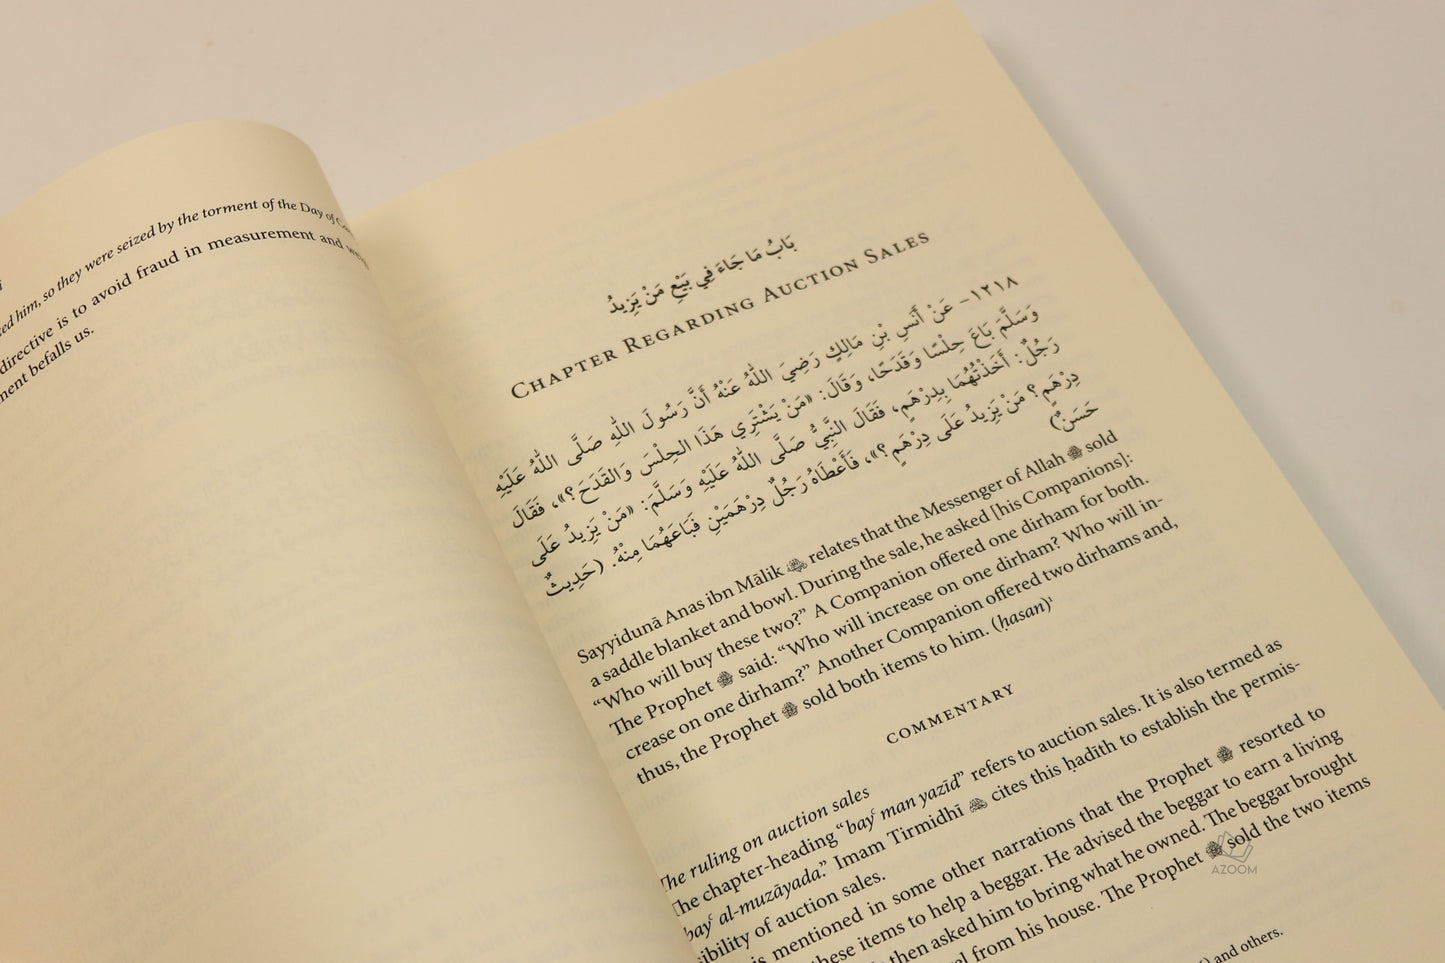 ed him, so they were seized by the torment of the Day of
directive is to avoid fraud in measurement and
ment befalls us.
بَابُ مَا جَاءَ فِي بَيْعِ مَنْ يَزِيدُ
CHAPTER REGARDING AUCTION SALES
١٢١٨- عَنْ أَنَسِ بْنِ مَالِكٍ رَضِيَ اللهُ عَنْهُ أَنَّ رَسُولَ اللهِ صَلَّى اللهُ عَلَيْهِ
وَسَلَّمَ بَاعَ حِلْسًا وَقَدَحًا، وَقَالَ: «مَنْ يَشْتَرِي هَذَا الحِلْسَ وَالقَدَحَ؟»، فَقَالَ
رَجُلٌ: أَخَذْتُهُمَا بِدِرْهَمٍ، فَقَالَ النَّبِيُّ صَلَّى اللهُ عَلَيْهِ وَسَلَّمَ: «مَنْ يَزِيدُ عَلَى
دِرْهَمٍ؟ مَنْ يَزِيدُ عَلَى دِرْهَمٍ؟»، فَأَعْطَاهُ رَجُلٌ دِرْهَمَيْنِ فَبَاعَهُمَا مِنْهُ. (حَدِيثٌ
حَسَنٌ)
Sayyidunā Anas ibn Mālik relates that the Messenger of Allah ﷺ sold
a saddle blanket and bowl. During the sale, he asked [his Companions]:
“Who will buy these two?” A Companion offered one dirham for both.
The Prophet ﷺ said: “Who will increase on one dirham? Who will in-
crease on one dirham?” Another Companion offered two dirhams and,
thus, the Prophet ﷺ sold both items to him. (ḥasan)¹
COMMENTARY
The ruling on auction sales
The chapter-heading “bayʿ man yazīd” refers to auction sales. It is also termed as
bayʿ al-muzāyada.” Imam Tirmidhī cites this ḥadīth to establish the permis-
sibility of auction sales.
is mentioned in some other narrations that the Prophet ﷺ resorted to
these items to help a beggar. He advised the beggar to earn a living
then asked him to bring what he owned. The beggar brought
from his house. The Prophet ﷺ sold the two items
and others.
AZOOM